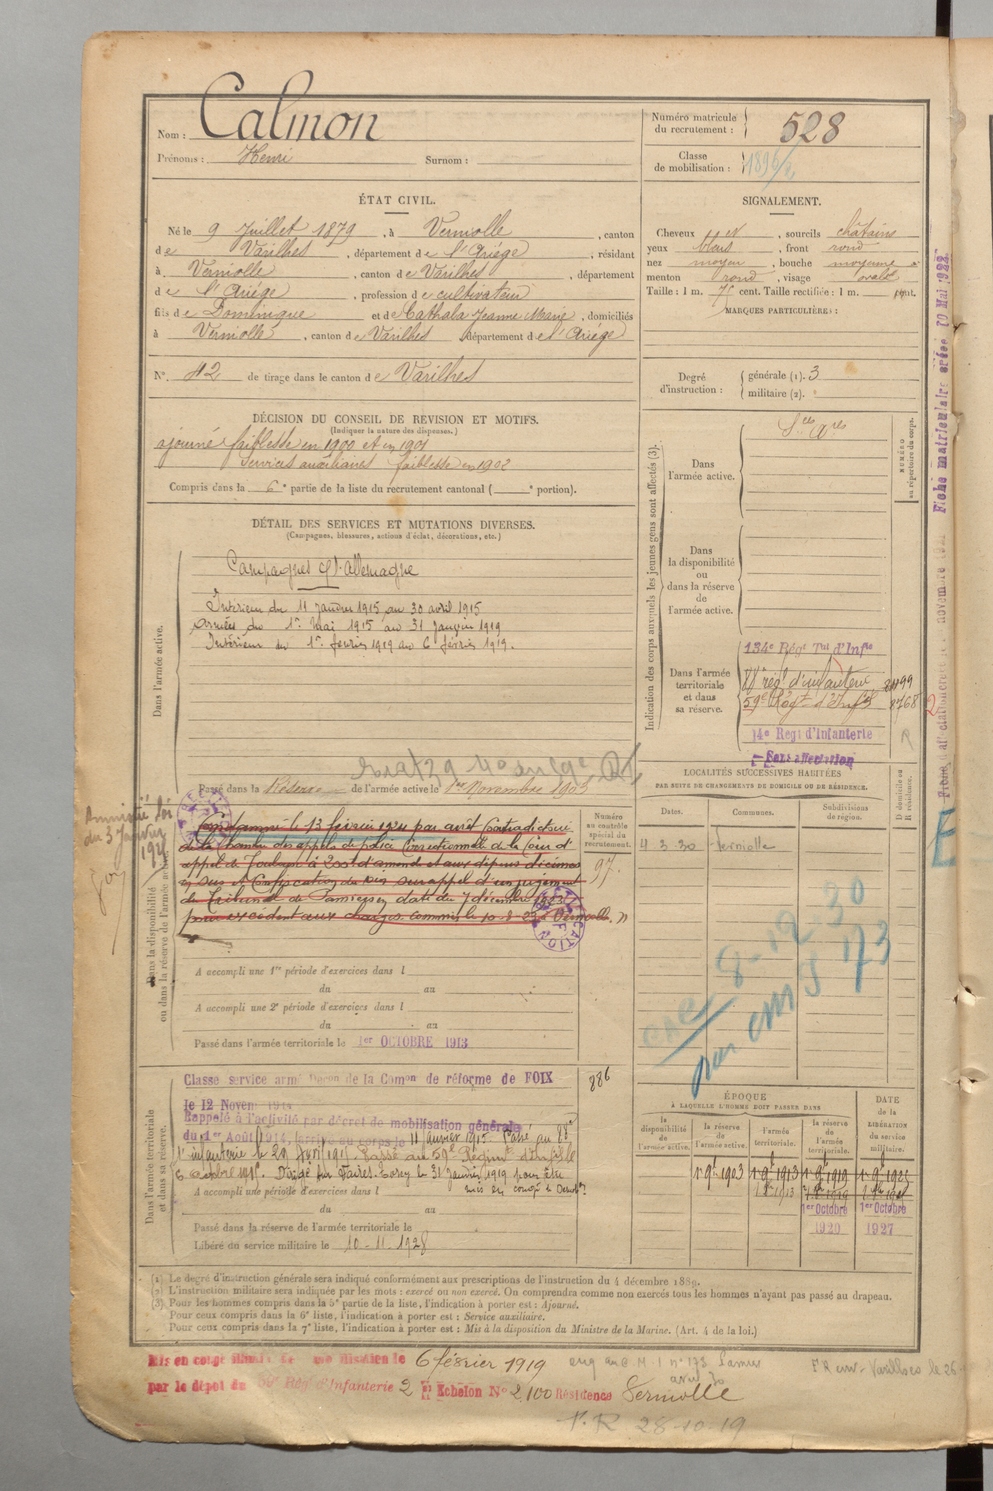 Nom : Calmon
Prénoms : Henri Surnom :
Numéro matricule du recrutement : 528
Classe de mobilisation : 1896/2
ÉTAT CIVIL.
Né le 9 Juillet 1879, à Verniolle, canton
de Varilhes, département de l'Ariége, résidant
à Verniolle, canton de Varilhes, département
de l'Ariége, profession de cultivateur
fils de Dominique et de Cathala Jeanne Marie, domiciliés
à Verniolle, canton de Varilhes, département de l'Ariége
N° 42 de tirage dans le canton de Varilhes
SIGNALEMENT.
Cheveux et, sourcils châtains
yeux bleus, front rond
nez moyen, bouche moyenne
menton rond, visage ovale
Taille : 1 m. 75 cent. Taille rectifiée : 1 m. cent.
MARQUES PARTICULIÈRES :
Degré d'instruction : générale (1). 3
militaire (2).
DÉCISION DU CONSEIL DE REVISION ET MOTIFS.
(Indiquer la nature des dispenses.)
ajourné faiblesse en 1900 et en 1901
Services auxiliaires faiblesse en 1902
Compris dans la 6e partie de la liste du recrutement cantonal ( e portion).
DÉTAIL DES SERVICES ET MUTATIONS DIVERSES.
(Campagnes, blessures, actions d'éclat, décorations, etc.)
Dans l'armée active.
Campagnes Ct Allemagne
Intérieur du 11 Janvier 1915 au 30 avril 1915
Armées du 1er Mai 1915 au 31 Janvier 1919
Intérieur du 1er février 1919 au 6 février 1919.
Passé dans la Réserve de l'armée active le 1er Novembre 1903
Indication des corps auxquels les jeunes gens sont affectés (3).
NUMÉRO au répertoire du corps.
Dans l'armée active. Sces Ares
Dans la disponibilité ou dans la réserve de l'armée active.
Dans l'armée territoriale et dans sa réserve.
134e Régt Tal d'Infie
88e régt d'infanterie
59e Régt d'Infie 8768
14e Regt d'Infanterie
Sans affectation
Fiche matriculaire créée 10 Mai 1922
LOCALITÉS SUCCESSIVES HABITÉES
PAR SUITE DE CHANGEMENTS DE DOMICILE OU DE RÉSIDENCE.
Dates. Communes. Subdivisions de région. domicile ou résidence.
4 3 30 Verniolle
cac 8-12-30
par cm S 173
E
Amnistié loi
du 3 Janvier
1925
Dans la disponibilité
ou dans la réserve de l'armée active
Numéro au contrôle spécial du recrutement.
97
Condamné le 13 février 1924 par arrêt Contradictoire
de la Chambre des appels de police Correctionnelle de la Cour d'
appel de Toulouse à 200f d'amende et aux dépens décimes
en sus et Confiscation du sur appel d'un jugement
du Tribunal de Pamiers en date du 7 décembre 1923
pour excédent aux charges commis le 10-8-23 à Verniolle.
RECTIFICATION
A accompli une 1re période d'exercices dans l
du au
A accompli une 2e période d'exercices dans l
du au
Passé dans l'armée territoriale le 1er OCTOBRE 1913
Dans l'armée territoriale et dans sa réserve.
886
Classe service armé Décon de la Comon de réforme de FOIX
le 12 Novem 1914
Rappelé à l'activité par décret de mobilisation générale
du 1er Août 1914, arrivé au corps le 11 janvier 1915. Passé au 88e
d'infanterie le 29 Avril 1915. Passé au 59e Régiment d'Infie le
6 octobre 1915. Dirigé sur le 31 Janvier 1919 pour être
mis en congé de Démob.
A accompli une période d'exercices dans l
du au
Passé dans la réserve de l'armée territoriale le
Libéré du service militaire le 10-11-1928
ÉPOQUE
À LAQUELLE L'HOMME DOIT PASSER DANS
DATE de la LIBÉRATION du service militaire.
la disponibilité de l'armée active. la réserve de l'armée active. l'armée territoriale. la réserve de l'armée territoriale.
1 9bre 1903 1 9bre 1913 1 9bre 1919 1 9bre 1925
1er Octobre 1920 1er Octobre 1927
(1) Le degré d'instruction générale sera indiqué conformément aux prescriptions de l'instruction du 4 décembre 1889.
(2) L'instruction militaire sera indiquée par les mots : exercé ou non exercé. On comprendra comme non exercés tous les hommes n'ayant pas passé au drapeau.
(3) Pour les hommes compris dans la 5e partie de la liste, l'indication à porter est : Ajourné.
Pour ceux compris dans la 6e liste, l'indication à porter est : Service auxiliaire.
Pour ceux compris dans la 7e liste, l'indication à porter est : Mis à la disposition du Ministre de la Marine. (Art. 4 de la loi.)
Mis en congé illimité de démobilisation le 6 février 1919
par le dépôt du 59e Rég d'Infanterie 2e Echelon N° 2100 Résidence Verniolle
F.R 28-10-19